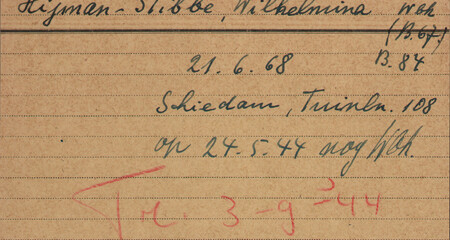 Hijman-Stibbe, Wilhelmina Wbk
(B.67)
21.6.68 B.84
Schiedam, Tuinln. 108
op 24.5.44 nog Wbk.
Tr. 3-9-44